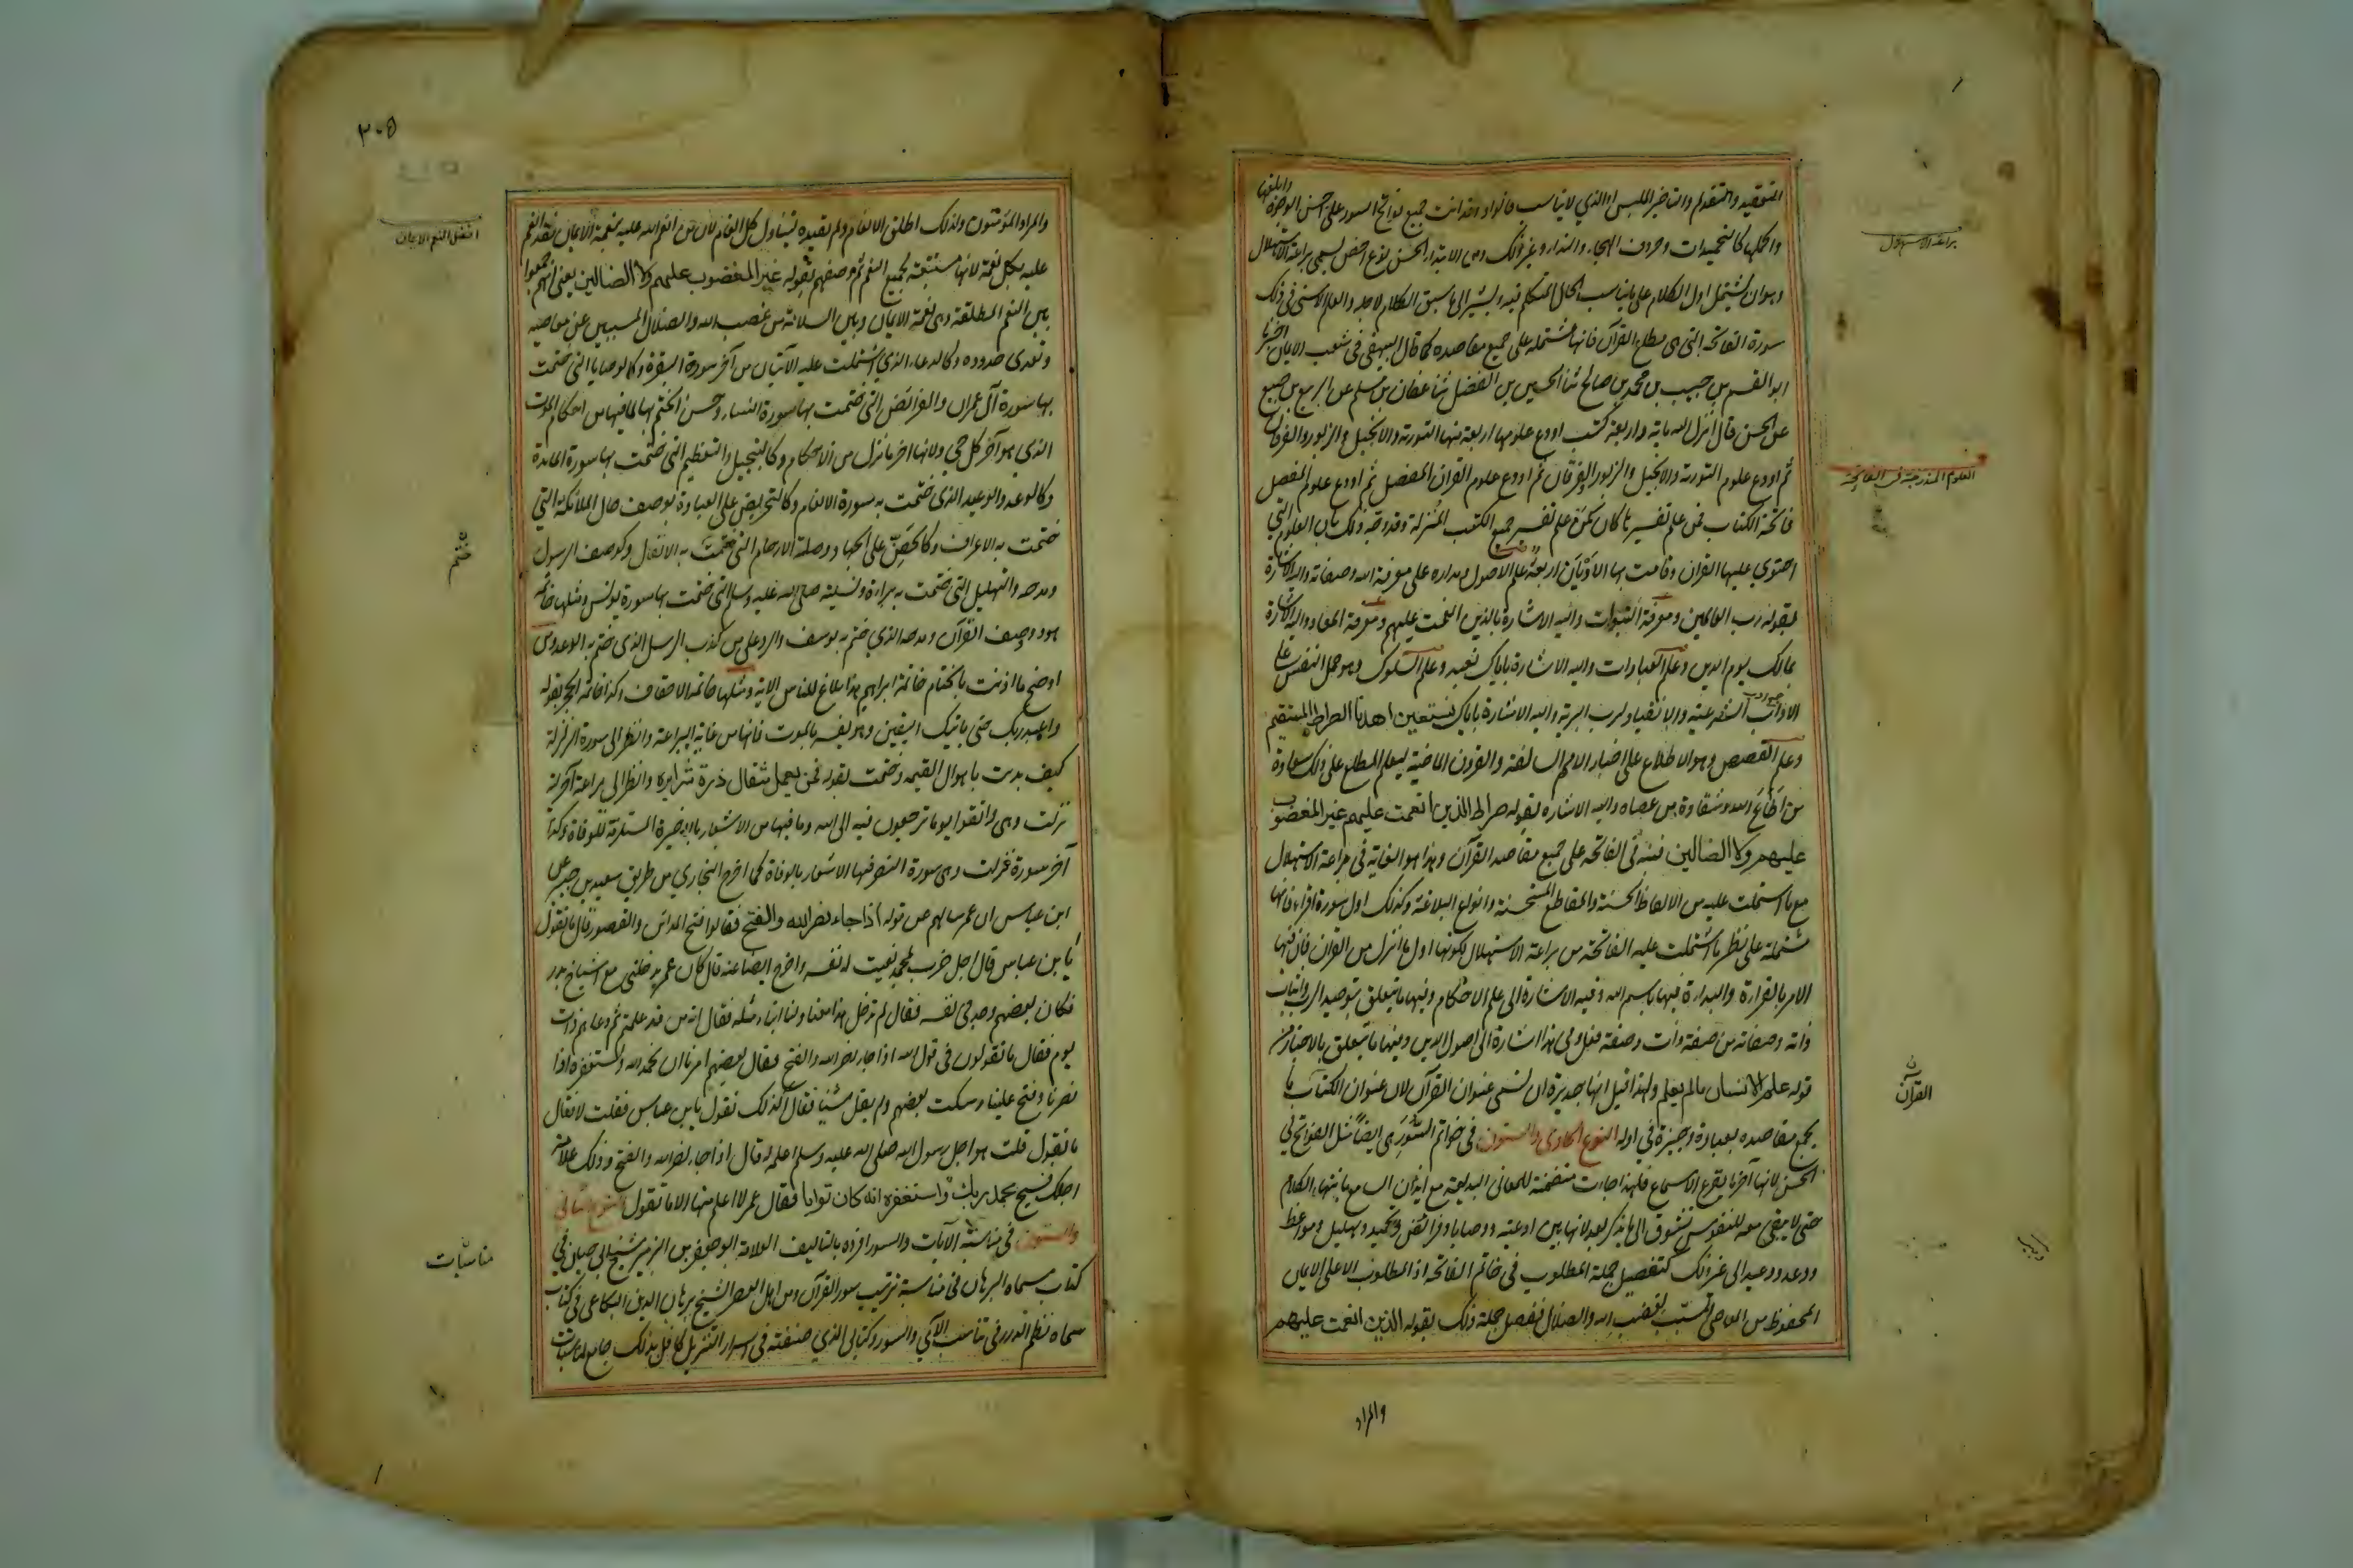 التعقيد والتقديم والتاخير الملبس او الذي لا يناسب قالوا وقد اتت جميع فواتح السور على احسن الوجوه وابلغها
واكملها كالتحميدات وحروف الهجاء والنداء وغير ذلك ومن الابتداء الحسن نوع اخص يسمى براعة الاستهلال
وهو ان يشتمل اول الكلام على ما يناسب الحال المتكلم فيه ويشير الى ما سيق الكلام لاجله والعلم الاسنى في ذلك
سورة الفاتحة التي هي مطلع القرآن فانها مشتملة على جميع مقاصده كما قال البيهقي في شعب الايمان اخبرنا
ابو القسم بن حبيب بن محمد بن صالح ثنا الحسين بن الفضل ثنا عفان بن مسلم عن الربيع بن صبيح
عن الحسن قال انزل الله ماية واربعة كتب اودع علومها اربعة منها التورية والانجيل والزبور والفرقان
ثم اودع علوم التورية والانجيل والزبور الفرقان ثم اودع علوم القران المفصل ثم اودع علوم المفصل
فاتحة الكتاب فمن علم تفسيرها كان كمن علم تفسير جميع الكتب المنزلة وقد وجه ذلك بان العلوم التي
احتوى عليها القران وقامت بها الاديان اربعة علم الاصول ومداره على معرفة الله وصفاته واليه الاشارة
بقوله رب العالمين ومعرفة النبوات واليه الاشارة بالذين انعمت عليهم ومعرفة المعاد واليه الاشارة
بمالك يوم الدين وعلم العبادات واليه الاشارة باياك نعبد وعلم السلوك وهو حمل النفس على
الآداب الشرعية والانقياد لرب البرية واليه الاشارة باياك نستعين اهدنا الصراط المستقيم
وعلم القصص وهو الاطلاع على اخبار الامم السالفة والقرون الماضية ليعلم المطلع على ذلك سعادة
من اطاع الله وشقاوة من عصاه واليه الاشارة بقوله صراط الذين انعمت عليهم غير المغضوب
عليهم ولا الضالين فنبه في الفاتحة على جميع مقاصد القرآن وهذا هو الغاية في براعة الاستهلال
مع ما اشتملت عليه من الالفاظ الحسنة والمقاطع المستحسنة وانواع البلاغة وكذلك اول سورة اقراء فانها
مشتملة على نظير ما اشتملت عليه الفاتحة من براعة الاستهلال لكونها اول ما انزل من القران فان فيها
الامر بالقراءة والبداءة فيها باسم الله وفيه الاشارة الى علم الاحكام وفيها ما يتعلق بتوحيد الرب واثبات
ذاته وصفاته من صفة ذات وصفة فعل وفي هذا اشارة الى اصول الدين وفيها ما يتعلق بالاخبار من
قوله علم الانسان ما لم يعلم ولهذا قيل انها جديرة ان تسمى عنوان القرآن لان عنوان الكتاب ما
يجمع مقاصده بعبارة وجيزة في اوله النوع الحادى والستون في خواتم السور هي ايضا مثل الفواتح في
الحسن لانها آخر ما يقرع الاسماع فلهذا جاءت متضمنة للمعاني البديعة مع ايذان السامع بانتهاء الكلام
حتى لا يبقى معه للنفوس تشوق الى ما يذكر بعد لانها بين ادعية ووصايا وفرائض وتحميد وتهليل ومواعظ
ووعد ووعيد الى غير ذلك كتفصيل جملة المطلوب في خاتمة الفاتحة اذ المطلوب الاعلى الايمان
المحفوظ من المعاصي المسببة لغضب الله والضلال ففصل جملة ذلك بقوله الذين انعمت عليهم
والمراد
براعة الاستهلال
العلوم المندرجة في الفاتحة
القرآن
٣٠٥
والمراد المؤمنون ولذلك اطلق الانعام ولم يقيده ليتناول كل انعام لان من انعم الله عليه بنعمة الايمان فقد انعم
عليه بكل نعمة لانها مستتبعة لجميع النعم ثم وصفهم بقوله غير المغضوب عليهم ولا الضالين يعني انهم جمعوا
بين النعم المطلقة وهي نعمة الايمان وبين السلامة من غضب الله والضلال المسببين عن معاصيه
وتعدي حدوده وكالدعاء الذي اشتملت عليه الآيتان من آخر سورة البقرة وكالوصايا التي ختمت
بها سورة آل عمران والفرائض التي ختمت بها سورة النساء وحسن الختم بها لما فيها من احكام الموت
الذي هو آخر كل حي ولانها اخر ما نزل من الاحكام وكالتبجيل والتعظيم التي ختمت بها سورة المائدة
وكالوعد والوعيد الذي ختمت به سورة الانعام وكالتحريض على العبادة بوصف حال الملائكة التي
ختمت به الاعراف وكالحض على الجهاد وصلة الارحام التي ختمت به الانفال وكوصف الرسول
ومدحه والتهليل التي ختمت به براءة وتسليته صلى الله عليه وسلم التي ختمت بها سورة يونس ومثلها خاتمة
هود ووصف القرآن ومدحه الذي ختم به يوسف والرد على من كذب الرسل الذي ختم به الرعد ومن
اوضح ما اذنت بالختام خاتمة ابراهيم هذا بلاغ للناس الاية ومثلها خاتمة الاحقاف وكذا خاتمة الحجر بقوله
واعبد ربك حتى ياتيك اليقين وهو يفسر بالموت فانها من غاية البراعة وانظر الى سورة الزلزلة
كيف بدت باهوال القيمة وختمت بقوله فمن يعمل مثقال ذرة شرا يره وانظر الى براعة آخر آية
نزلت وهي واتقوا يوما ترجعون فيه الى الله وما فيها من الاشعار بالاخيرة المستلزمة للوفاة وكذا
آخر سورة نزلت وهي سورة النصر فيها الاشعار بالوفاة كما اخرج البخاري من طريق سعيد بن جبير عن
ابن عباس ان عمر سالهم عن قوله اذا جاء نصر الله والفتح فقالوا فتح المدائن والقصور قال ما تقول
يا ابن عباس قال اجل ضرب لمحمد نعيت له نفسه واخرج ايضا عنه قال كان عمر يدخلني مع اشياخ بدر
فكان بعضهم وجد في نفسه فقال لم تدخل هذا معنا ولنا ابناء مثله فقال انه من قد علمتم ثم دعاهم ذات
يوم فقال ما تقولون في قول الله اذا جاء نصر الله والفتح فقال بعضهم امرنا ان نحمد الله ونستغفره اذا
نصرنا وفتح علينا وسكت بعضهم ولم يقل شيئا فقال اكذلك تقول يا ابن عباس فقلت لا فقال
ما تقول قلت هو اجل رسول الله صلى الله عليه وسلم اعلمه له قال اذا جاء نصر الله والفتح وذلك علامة
اجلك فسبح بحمد ربك واستغفره انه كان توابا فقال عمر لا اعلم منها الا ما تقول النوع الثاني
والستون في مناسبة الآيات والسور افرده بالتاليف العلامة ابو جعفر بن الزبير شيخ ابي حيان في
كتاب سماه البرهان في مناسبة ترتيب سور القرآن ومن اهل العصر الشيخ برهان الدين البقاعي في كتاب
سماه نظم الدرر في تناسب الآي والسور وكتابي الذي صنفته في اسرار التنزيل كافل بذلك جامع لمناسبات
افضل النعم الايمان
ختم
مناسبات